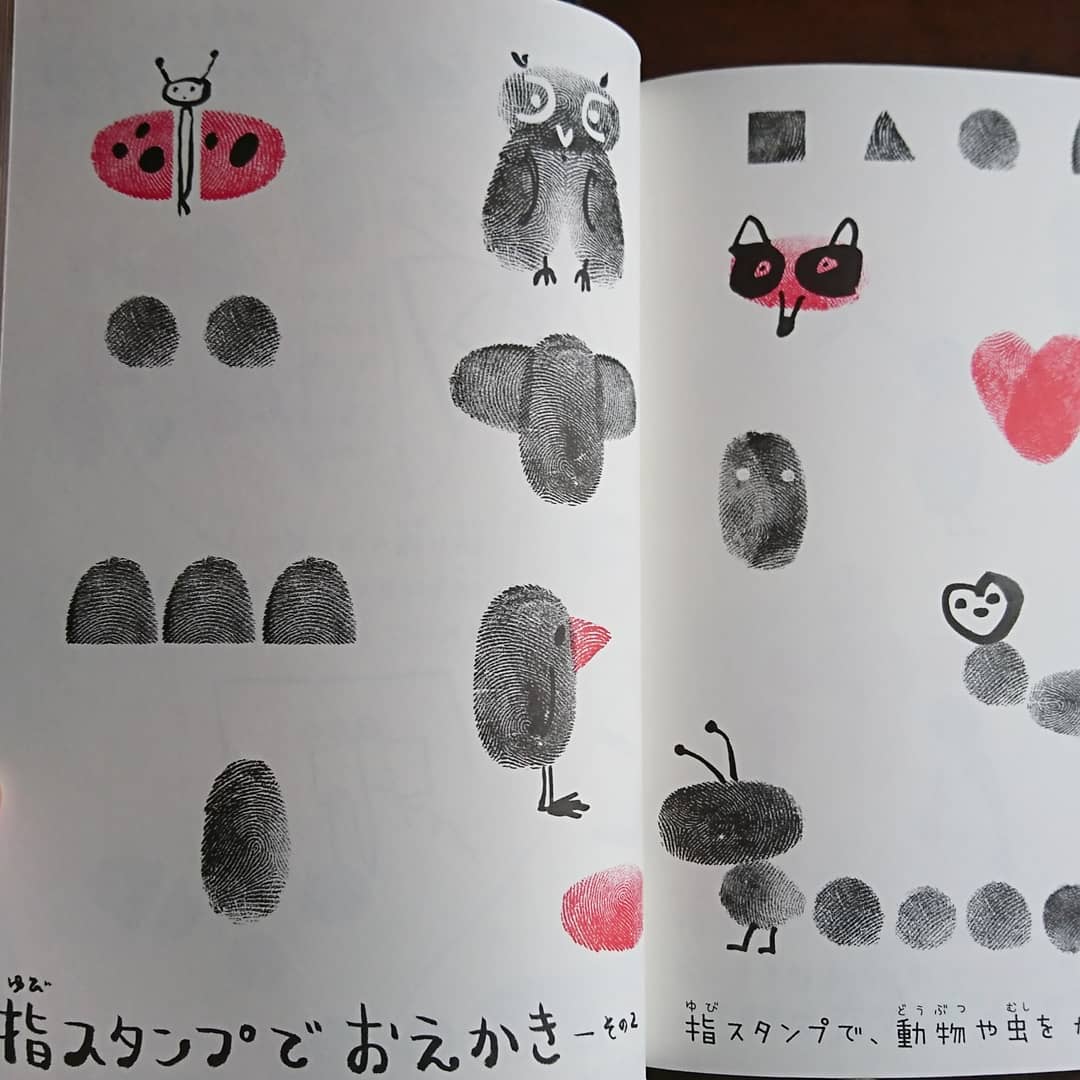 ゆび
指スタンプで おえかき—その2
ゆび どうぶつ むし
指スタンプで、動物や虫を